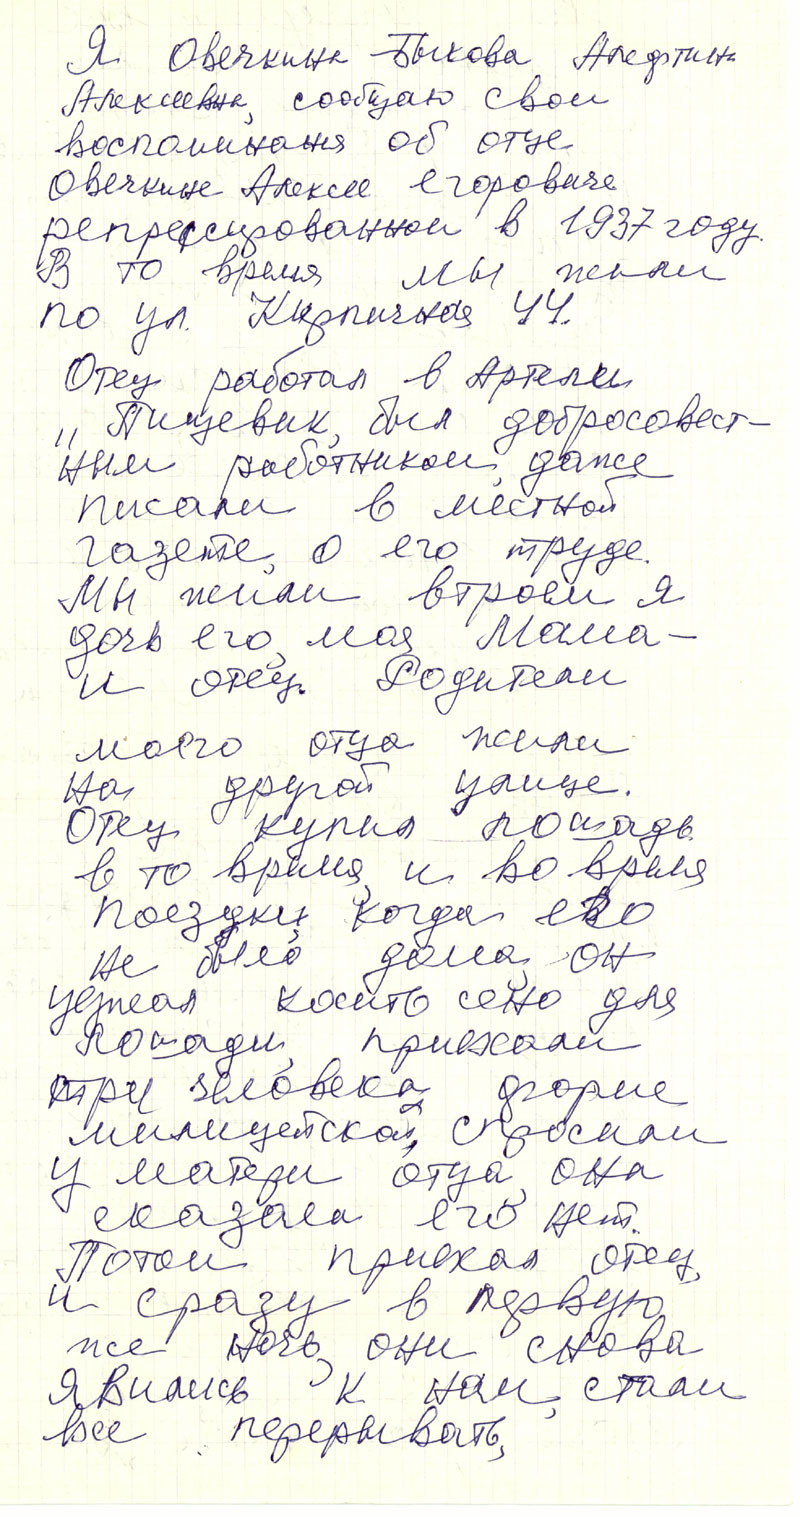 Я Овечкина-Быкова Алефтина
Алексеевна, сообщаю свои
воспоминаня об отце
Овечкине Алексее Егоровиче
репрессированном в 1937 году.
В то время мы жили
по ул. Кирпичная 44.
Отец работал в Артели
„Пищевик, был добросовест-
ным работником, даже
писали в местной
газете, о его труде.
Мы жили втроем я
дочь его, моя Мама-
и отец. Родители
моего отца жили
на другой улице.
Отец купил лошадь
в то время, и во время
поездки, когда его
не было дома, он
уезжал косить сено для
лошади, приехали
три человека, в форме
милицейской, спросили
у матери отца, она
сказала его нет.
Потом приехал отец,
и сразу в первую
же ночь, они снова
явились к нам, стали
все перерывать,